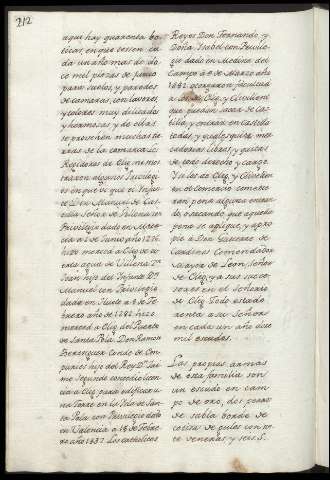 212
aqui hay quarenta bo
ticas, en que tessen ca
da un año mas de do
ce mil piezas de
para suelos, y paredes
de camaras, con labores,
y colores muy delicados
y hermosas y de ellas
se proveen muchas tie
rras de la comarca. Los
Regidores de Elq. me mos
traron algunos Privilegi
os en que vi que el Infan
te Don Manuel de Cas
tilla Señor de Villena con
Privilegio dado en Murc
ia a de Junio año 1276.
hizo merced a Elq. de
agua de Villena. Dn
Juan hijo del Infante Dn
Manuel con Privilegio
dado en a 8 de Fe
brero año de 1282. hizo
merced a Elq. del Puerto
de Santa Pola. Don Ramon
Berenguer Conde de Em
purias hijo del Rey Dn Jai
me Segundo concedio licen
cia a Elq. para edificar u
na Torre en la Isla de San
ta Pola con Privilegio dado
en Valencia a 18 de Febre
ro año 1337. Los Catholicos
Reyes Don Fernando, y
Doña Isabel con Privile
gio dado en Medina del
Campo a 8 de Marzo año
1482. otorgaron facultad
a los de Elq. y Crevillent
que puedan sacar de Cas
tilla, y entrar en Castilla
todas, y qualesquier mer
cadurias libres, y quitas
de todo derecho y cargo.
Y a los de Elq. y Crevillen
te de Comercio someter
pena alguna entran
do, o sacando que aquella
pena se aplique, y apro
pie a Don Gutierre de
Cardenas Comendador
Mayor de Leon, Señor
de Elq. y a sus suceso
res en el Señorio
de Elq. Todo estado
renta a su Señor
en cada un año diez
mil escudos.
Las propias armas
de esta familia son
un escudo en cam
po de oro, dos
de sable borde de
de gules con sie
te veneras y sers S.